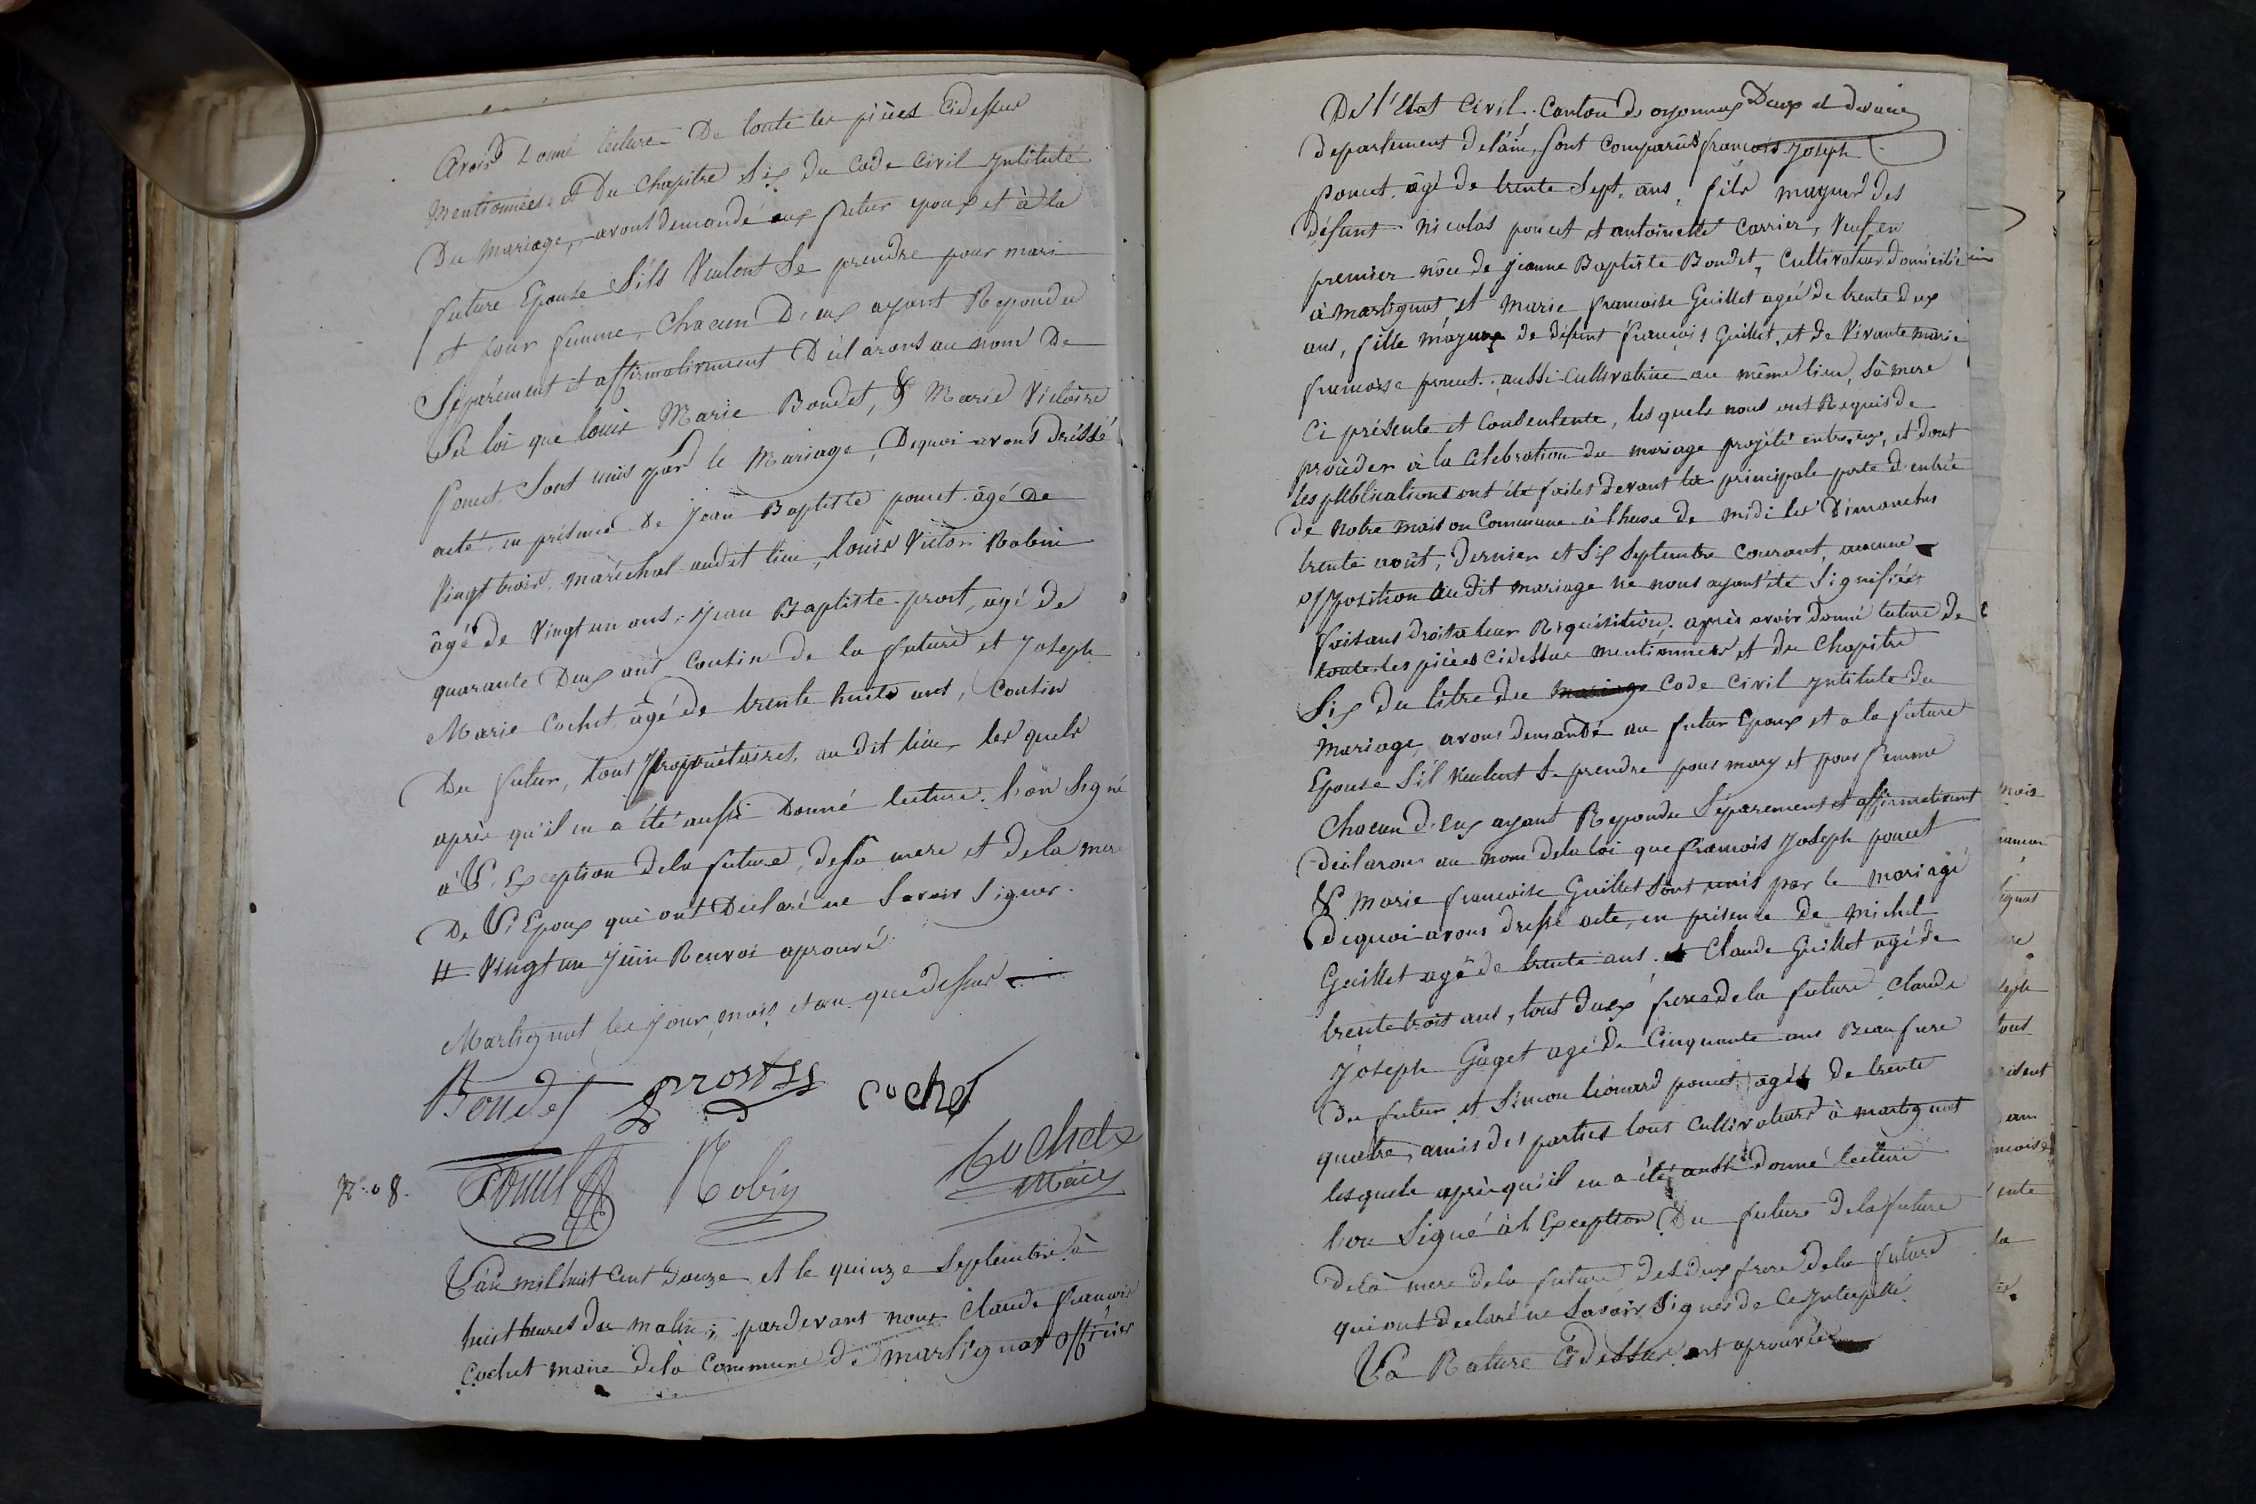 Avoir Donné lecture De toute les pièces Cidessus
Mentionnées et Du Chapitre Six du Code Civil Yntitulé
Du Mariage, avons demandé aux futur epoux et à la
future Epouse S'ils Veulent Se prendre pour mari
et pour femme, Chacun D'eux ayant Repondu
Séparément et affirmativement Déclarons au nom De
La loi que louis Marie Bondet, & Marie Victoire
Poncet Sont unis par le Mariage, Dequoi avons dréssé
acte, en présence De jean Baptiste poncet âgé De
Vingt trois, maréchal audit lieu, louis Victor Robin
âgé de Vingt un ans, jean Baptiste prost, agé de
quarante Deux ans Cousin de la future et Joseph
Marie Cochet âgé de trente huit ans, Cousin
Du futur, tous Propriétaires, au dit lieu les quels
après qu'il en a été aussi Donné lecture l'on Signé
à L'Exception dela future, de sa mere et de la mere
De L'Epoux qui ont Déclaré ne Savoir Signer.
# Vingt un juin Renvoi aprouvé
Martignat les jour, mois et an que dessus
Bondet Prost Cochet
N.o 8. Poncet Robin Cochet
Maire
L'an mil huit Cent Douze et le quinze Septembre à
huit heures du matin, pardevant nous Claude françois
Cochet maire dela Commune de martignat officier
De l'Etat Civil. Canton de oyonnax
departement delain, Sont Comparûs françois Joseph
poncet âgé de trente Sept ans, fils mayeur des
défunt Nicolas poncet et antoinette Carrier, Veuf en
premier nôce de jeanne Baptiste Bondet, Cultivateur domicilié
à Martignat, et Marie francoise Guillet agée de trente deux
ans, fille mayeure de défunt françois Guillet, et de Vivante marie
francoise poncet, aussi Cultivatrice au même lieu, Sa mere
Ci présente et Consentente, les quels nous ont Requis de
procéder à la Célébration du mariage projété entre eux, et dont
les publications ont été faites devant la principale porte d'entrée
de notre maison Commune à l'heure de midi les Dimanches
trente août, dernier et Six Septembre Courant, aucune
opposition audit mariage ne nous ayant été Signifiée
faisans droit à leur Réquisition, après avoir donné lecture de
toute les pièces Cidessus mentionnées et du Chapitre
Six du titre du mariage Code Civil yntitulé du
Mariage, avons demandé au futur Epoux et a la future
Epouse S'il Veulent Se prendre pour mary et pour femme
Chacun d'eux ayant Repondu Séparement et affirmativement
déclarons au nom dela loi que françois Joseph poncet
& Marie francoise Guillet Sont unis par le mariage
dequoi avons dressé acte, en présence de Michel
Guillet agé de trente ans, Claude Guillet agé de
trente trois ans, tous deux freres dela future, Claude
Joseph Gaget agé de Cinquante ans Beau frere
Du futur et Simon lionard poncet, agé de trente
quatre, amis des parties tous Cultivateurs à martignat
les quels après qu'il en a été aussi donné lecture
l'on Signé à l'Exception Du future dela future
dela mere dela future des deux frere dela future
qui ont declaré ne Savoir Signer de Ce ynterpellé.
La Rature Cidessus est aprouvée